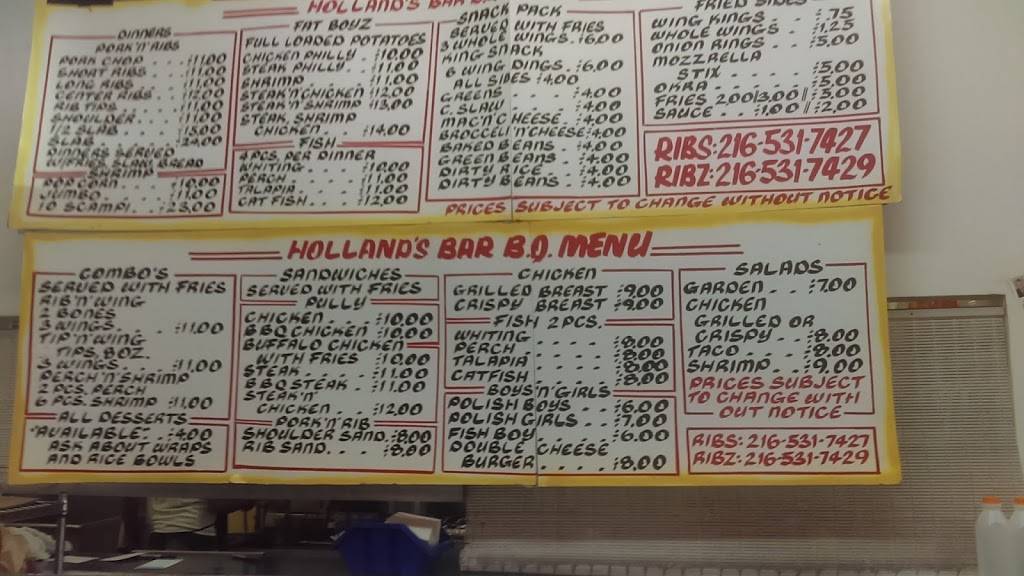 HOLLAND'S BAR
DINNERS
PORK'N'RIBS
PORK CHOP . . $11.00
SHORT RIBS . . $11.00
LONG RIBS . . $11.00
CENTER RIBS . $11.00
RIB TIPS . . . $11.00
SHOULDER . . $11.00
1/2 SLAB . . . $15.00
SLAB . . . . $24.00
SERVED
W/FRIES SLAW BREAD
SHRIMP
POPCORN . . $10.00
JUMBO . . . $11.00
10 SCAMPI . . $25.00
FAT BOYZ
FULL LOADED POTATOES
CHICKEN PHILLY . $10.00
STEAK PHILLY . . $11.00
SHRIMP . . . . $11.00
STEAK'N'CHICKEN $12.00
STEAK'N'SHRIMP $13.00
STEAK SHRIMP
CHICKEN . . . $14.00
FISH
4 PCS. PER DINNER
WHITING . . . $10.00
PERCH . . . . $11.00
TALAPIA . . . $11.00
CAT FISH . . . $12.00
SNACK PACK
SERVED WITH FRIES
3 WHOLE WINGS $6.00
KING SNACK
6 WING DINGS $6.00
ALL SIDES $4.00
GREENS . . . $4.00
C. SLAW . . . $4.00
MAC'N'CHEESE $4.00
BROCCELI'N'CHEESE $4.00
BAKED BEANS $4.00
GREEN BEANS $4.00
DIRTY RICE . $4.00
DIRTY BEANS . $4.00
FRIED SIDES
WING KINGS . . $.75
WHOLE WINGS . $1.25
ONION RINGS . . $5.00
MOZZRELLA
STIX . . . . $5.00
OKRA . . . . $5.00
FRIES 2.00/3.00/$5.00
SAUCE . . $1.00/$2.00
RIBS: 216-531-7427
RIBZ: 216-531-7429
PRICES SUBJECT TO CHANGE WITHOUT NOTICE
HOLLAND'S BAR B.Q. MENU
COMBO'S
SERVED WITH FRIES
RIB'N'WING
2 BONES
3 WINGS . . . $11.00
TIP'N'WING
TIPS 8OZ.
3 WINGS . . . $11.00
PERCH'N'SHRIMP
2 PCS. PERCH
6 PCS. SHRIMP $11.00
ALL DESSERTS
AVAILABLE . . $4.00
ASK ABOUT WRAPS
AND RICE BOWLS
SANDWICHES
SERVED WITH FRIES
PULLY
CHICKEN . . . $10.00
BBQ CHICKEN . $10.00
BUFFALO CHICKEN
WITH FRIES $10.00
STEAK . . . . $11.00
BBQ STEAK . . $11.00
STEAK'N'
CHICKEN . . $12.00
PORK'N'RIB
SHOULDER SAND. $8.00
RIB SAND. . . . $8.00
CHICKEN
GRILLED BREAST $9.00
CRISPY BREAST $9.00
FISH 2 PCS.
WHITING . . . . $8.00
PERCH . . . . $8.00
TALAPIA . . . . $8.00
CATFISH . . . . $8.00
BOYS'N'GIRLS
POLISH BOYS . . $6.00
POLISH GIRLS . . $7.00
FISH BOY . . . $6.00
DOUBLE CHEESE
BURGER . . . . $8.00
SALADS
GARDEN . . $7.00
CHICKEN
GRILLED OR
CRISPY . . $8.00
TACO . . . $8.00
SHRIMP . . $9.00
PRICES SUBJECT
TO CHANGE WITH
OUT NOTICE
RIBS: 216-531-7427
RIBZ: 216-531-7429